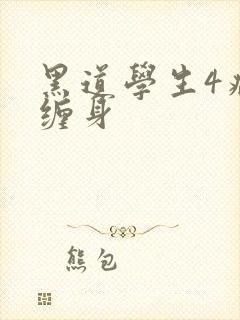 黑道學生4
缠身
熊包